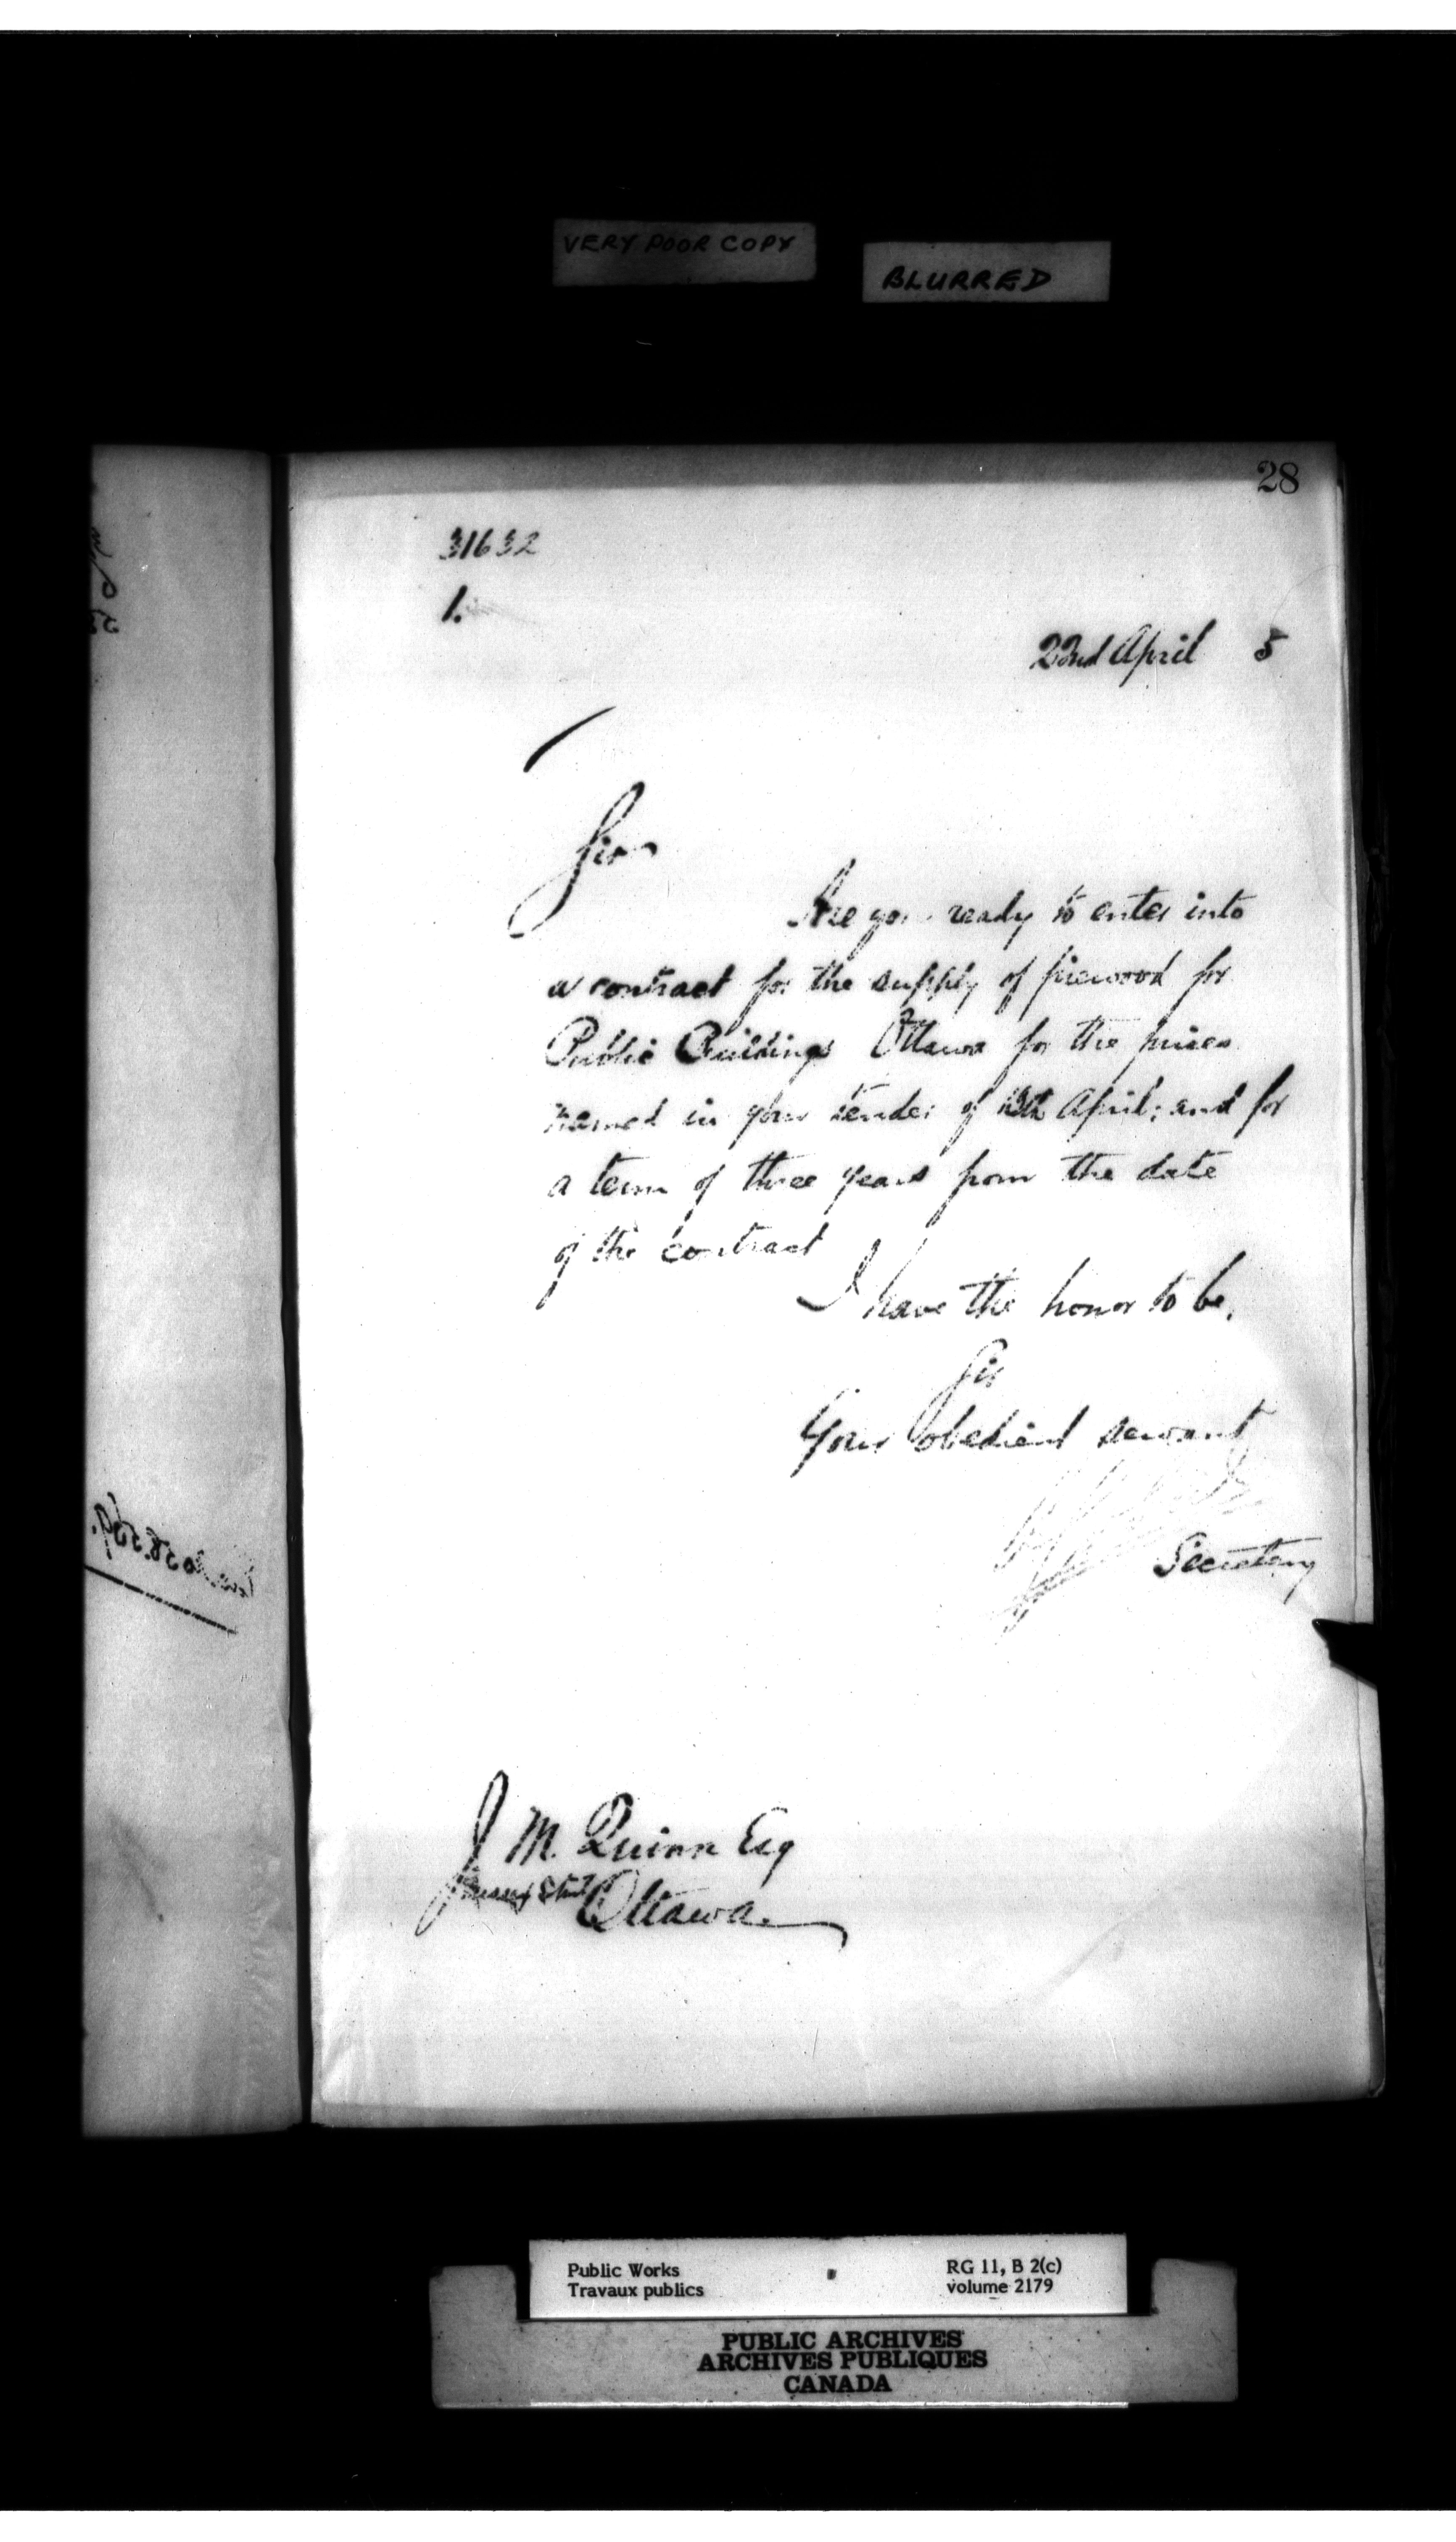 VERY POOR COPY
BLURRED
28
31632
1.
22nd April 5
Sir
Are you ready to enter into
a contract for the supply of firewood for
Public Buildings Ottawa for the prices
named in your tender of April; and for
a term of three years from the date
of the contract
I have the honor to be,
Sir
Your obedient servant
Secretary
J M. Quinn Esq
Ottawa
Public Works
Travaux publics
RG 11, B 2(c)
volume 2179
PUBLIC ARCHIVES
ARCHIVES PUBLIQUES
CANADA